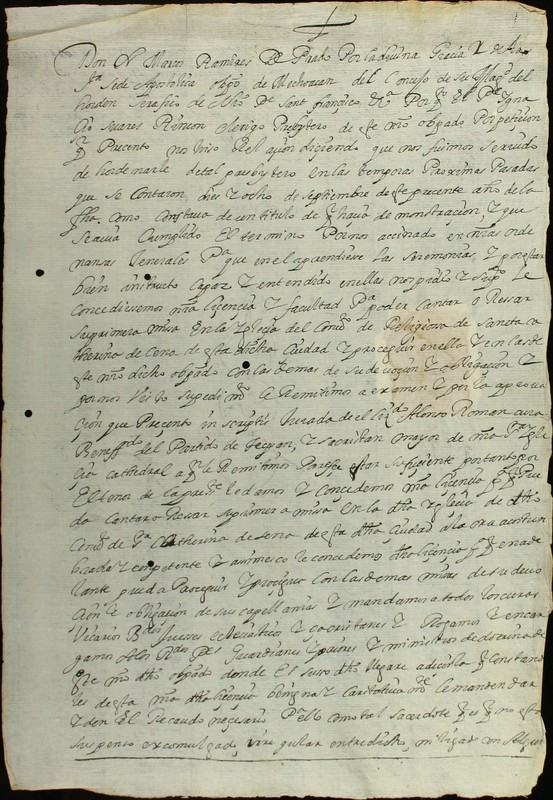 Don fr Marcos Ramires De Prado Por la divina Gracia Y de la
sta sede Apostolica obpo de Mechoacan del Consejo de su Magd del
horden Serafico de Nro Pe Sant françisco &a Por qto El Pe Igna
cio suares Rincon clerigo Presbytero de este nro obpado Por petiçion
q Presentó nos hiso Relaçion diciendo que nos fuimos servido
de hordenarle de tal presbytero en las temporas Proximas Pasadas
que se Contaron dies y ocho de septiembre de este presente año de la
fha. como Constava de un titulo de q haçia demonstraçion, y que
se avia Cumplido El termino Por nos asignado en nras orde
nansas Generales Pa que en el aprendiese las seremonias, y por estar
bien instructo capax y entendido en ellas nos pidio y supco Le
concediesemos nra liçencia y facultad Pa poder Cantar o Ressar
su primera missa En la yglecia del Convto de Religiosas de sancta ca
therina de cena de esta dicha Ciudad y proceguir en ello y en las de
este nro dicho obpado con las demas de su devoçion y obligaçion y
por nos visto su pedimto le Remitimos a examen y por la aprova
çion que Presentó in scriptis Jurada de el Lido Alonso Roman cura
Beneffdo del Partido de Tecpan, y sacristan mayor de nra sta ygle
cia cathedral a qn le Remitimos Pareçe estar suficiente por tanto por
El tenor de la preste le damos y concedemos nra liçençia pa q Pue
da Cantar o Ressar su primera missa en la dha yglecia de dho
Convto de sta Catherina de sena de esta dha ciudad a la ora acostum
brada y competente y assimesmo le concedemos dha liçençia pa q en ade
lante pueda Proseguir y prosiga con las demas missas de su devo
çion y obligaçion de sus capellanias y mandamos a todos los curas
Vicarios Bdos Jueses ecleciasticos y sacristanes y Rogamos y encar
gamos a los Rdos Pes Guardianes y priores y ministros de doctrina de
este nro dho obpado donde El susso dho llegare a desirla q constando
les de esta nra dha liçençia benigna y caritativamte le manden dar
y den El Recaudo necesario Pa ello como tal sacerdote q es y no esta
suspenso excomulgado, irregular entredicho, ni ligado con Algun